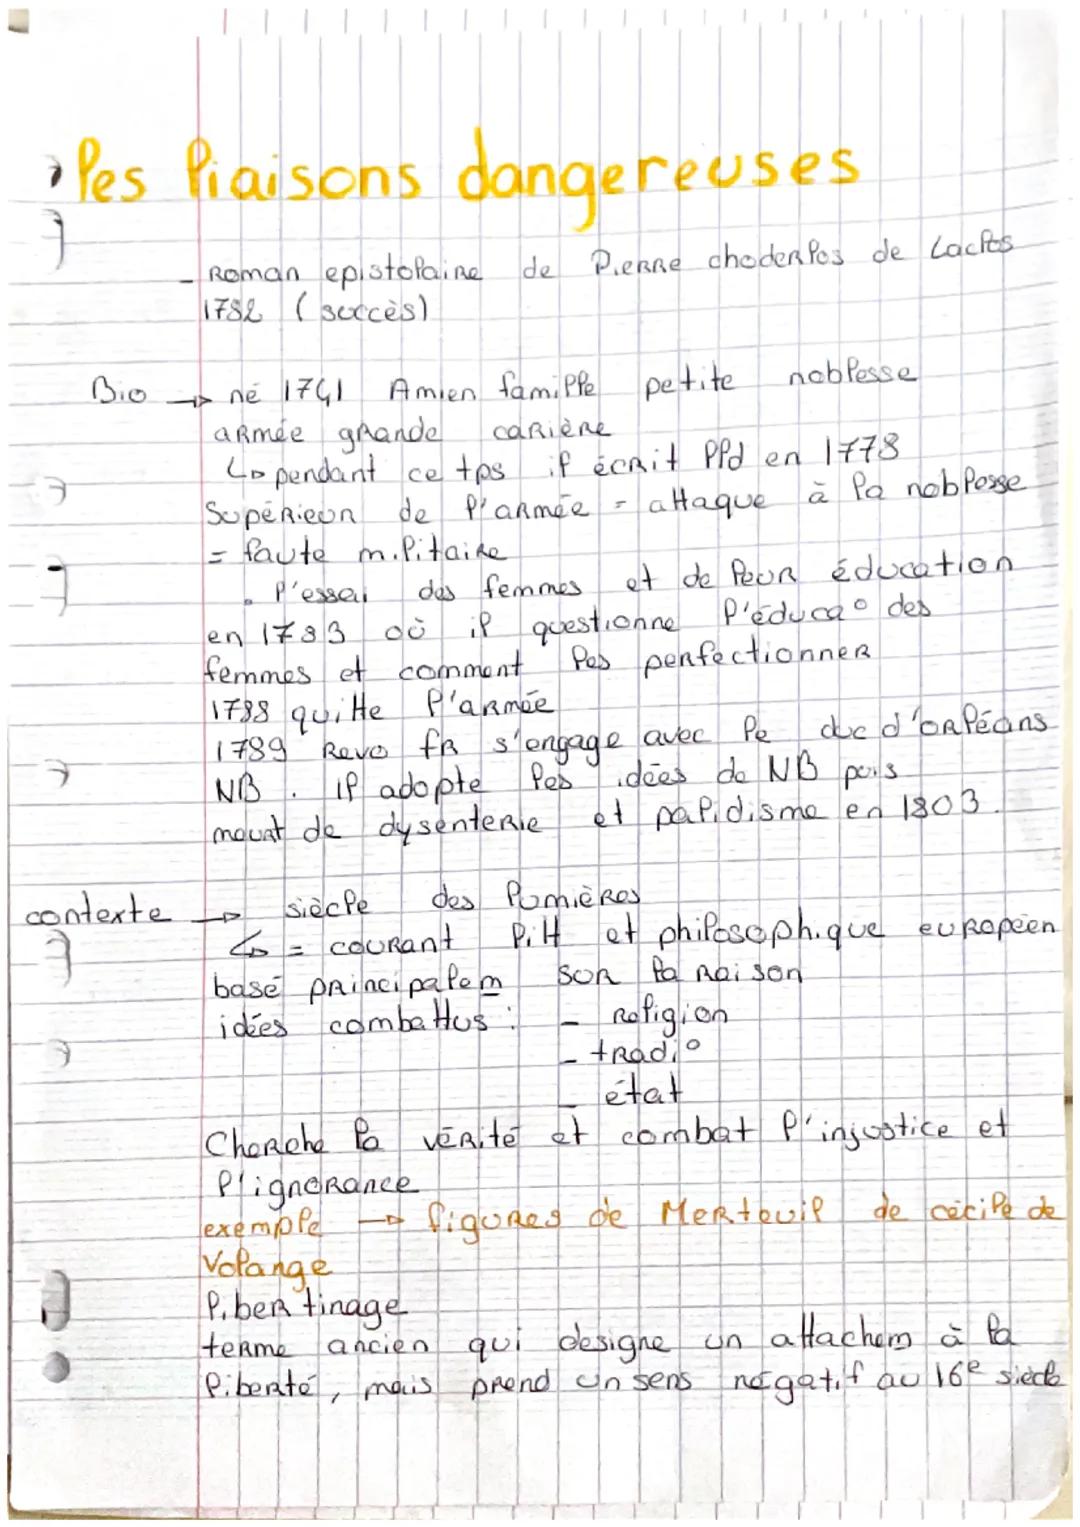 les liaisons dangereuses
- Roman epistolaire de Pierre choderlos de Laclos
1782 (succès)
Bio → né 1741 Amien famille petite noblesse
armée grande carière
↳ pendant ce tps il écrit lld en 1778
Supérieur de l'armée = attaque à la noblesse
= faute militaire
. l'essai des femmes et de leur éducation
en 1783 où il questionne l'éduca° des
femmes et comment les perfectionner
1788 quitte l'armée
1789 Revo fr s'engage avec le duc d'orléans
NB. il adopte les idées de NB puis
meurt de dysenterie et palidisme en 1803.
contexte → siècle des lumières
↳ = courant litt et philosophique europeen
basé principalem sur la raison
idées combattus : - religion
- tradi°
- état
Cherche la vérité et combat l'injustice et
l'ignorance
exemple → figures de Merteuil de cécile de
Volange
libertinage
terme ancien qui designe un attachem à la
liberté, mais prend un sens négatif au 16e siècle